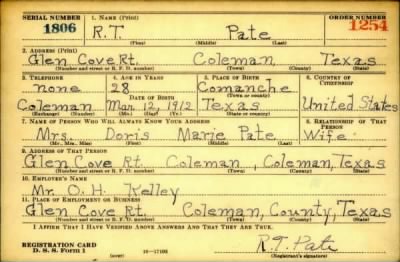 SERIAL NUMBER 1. NAME (Print) ORDER NUMBER
1806 R.T. Pate 1254
(First) (Middle) (Last)
2. ADDRESS (Print)
Glen Cove Rt. Coleman Texas
(Number and street or R. F. D. number) (Town) (County) (State)
3. TELEPHONE 4. AGE IN YEARS 5. PLACE OF BIRTH 6. COUNTRY OF CITIZENSHIP
none 28 Comanche
DATE OF BIRTH (Town or county)
Coleman Mar. 12, 1912 Texas United States
(Exchange) (Number) (Mo.) (Day) (Yr.) (State or country)
7. NAME OF PERSON WHO WILL ALWAYS KNOW YOUR ADDRESS 8. RELATIONSHIP OF THAT PERSON
Mrs. Doris Marie Pate Wife
(Mr., Mrs., Miss) (First) (Middle) (Last)
9. ADDRESS OF THAT PERSON
Glen Cove Rt. Coleman, Coleman, Texas
(Number and street or R. F. D. number) (Town) (County) (State)
10. EMPLOYER'S NAME
Mr. O. H. Kelley
11. PLACE OF EMPLOYMENT OR BUSINESS
Glen Cove Rt Coleman, County, Texas
(Number and street or R. F. D. number) (Town) (County) (State)
I AFFIRM THAT I HAVE VERIFIED ABOVE ANSWERS AND THAT THEY ARE TRUE.
REGISTRATION CARD R.T. Pate
D. S. S. Form 1 16—17105 (Registrant's signature)